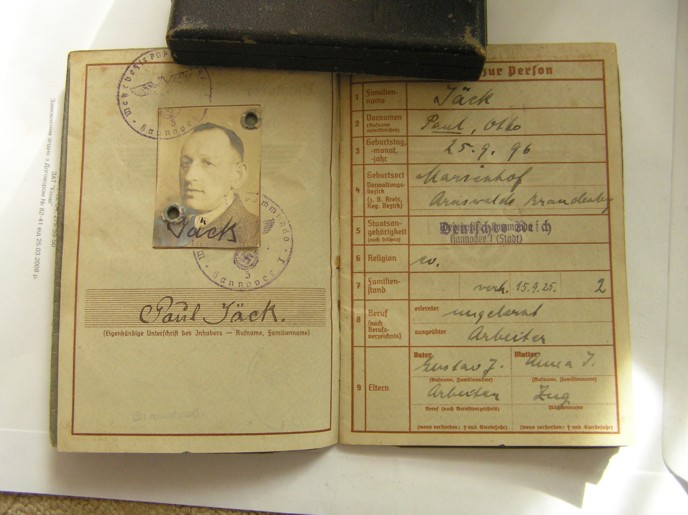 Hannover
Jäck
Hannover I
Paul Jäck.
(Eigenhändige Unterschrift des Inhabers — Rufname, Familienname)
zur Person
1 Familien-name Jäck
2 Vornamen (Rufname unterstreichen) Paul, Otto
3 Geburtstag, -monat, -jahr 25.9.96
4 Geburtsort Marienhof
Verwaltungs-bezirk (z. B. Kreis, Reg.-Bezirk) Arnswalde Brandenbg
5 Staatsan-gehörigkeit (auch frühere) Deutsches Reich
Hannover I (Stadt)
6 Religion ev.
7 Familien-stand verh. 15.9.25. 2
8 Beruf (nach Berufs-verzeichnis) erlernter ungelernt
ausgeübter Arbeiter
9 Eltern
Vater Mutter
Gustav J. Anna J.
(Rufname, Familienname) (Rufname, Familienname)
Arbeiter Zug
Beruf (nach Berufsverzeichnis) Mädchenname
(wenn verstorben: † und Sterbejahr) (wenn verstorben: † und Sterbejahr)